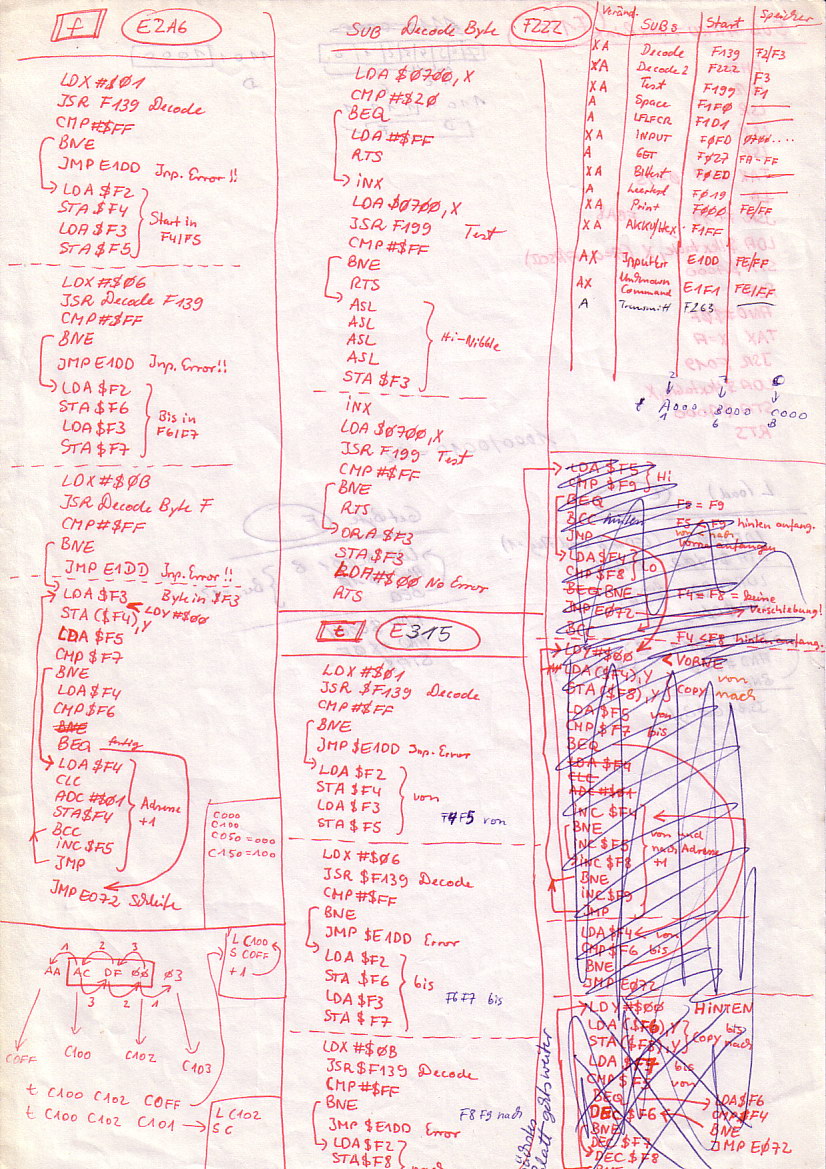 f E2A6
LDX #$01
JSR F139 Decode
CMP #$FF
BNE
JMP E1DD Inp. Error!!
LDA $F2
STA $F4
LDA $F3
STA $F5
Start in
F4/F5
LDX #$06
JSR Decode F139
CMP #$FF
BNE
JMP E1DD Inp. Error!!
LDA $F2
STA $F6
LDA $F3
STA $F7
Bis in
F6/F7
LDX #$0B
JSR Decode Byte F
CMP #$FF
BNE
JMP E1DD Inp. Error!!
LDA $F3 Byte in $F3
STA ($F4),Y LDY #$00
LDA $F5
CMP $F7
BNE
LDA $F4
CMP $F6
BNE
BEQ
LDA $F4
CLC
ADC #$01
STA $F4
BCC
INC $F5
JMP
Adresse
+1
JMP E072 Schleife
C000
C100
C050 = 000
C150 = 100
L C100
S C0FF
+1
1 2 3
AA AC DF 00 03
3 2 1
C0FF C100 C102 C103
t C100 C102 C0FF
t C100 C102 C101
L C102
S C
SUB Decode Byte F222
LDA $0700,X
CMP #$20
BEQ
LDA #$FF
RTS
INX
LDA $0700,X
JSR F199 Test
CMP #$FF
BNE
RTS
ASL
ASL
ASL
ASL
STA $F3
Hi-Nibble
INX
LDA $0700,X
JSR F199 Test
CMP #$FF
BNE
RTS
ORA $F3
STA $F3
LDA #$00 No Error
RTS
t E315
LDX #$01
JSR $F139 Decode
CMP #$FF
BNE
JMP $E1DD Inp. Error
LDA $F2
STA $F4
LDA $F3
STA $F5
von
F4F5 von
LDX #$06
JSR $F139 Decode
CMP #$FF
BNE
JMP $E1DD Error
LDA $F2
STA $F6
LDA $F3
STA $F7
bis
F6F7 bis
LDX #$0B
JSR $F139 Decode
CMP #$FF
BNE
JMP $E1DD Error
LDA $F2
STA $F8
nach
F8 F9 nach
Blatt gehts weiter
Veränd. SUBs Start Speicher
XA Decode F139 F2/F3
XA Decode 2 F222 F3
XA Test F199 F1
A Space F1F0
A LF/CR F1D1
XA INPUT F0FD 0700....
A GET F027 FA-FF
XA F0ED
A F019
XA Print F000 FE/FF
XA AKKU/Hex F1FF
AX InputErr E1DD FE/FF
AX Unknown Command E1F1 FE/FF
A Transmitt F263
t A000 B000 C000
LDA $F5
CMP $F9
Hi
BEQ
BCC hinten
JMP
F8 = F9
F5 < F9 hinten anfang.
von < nach
vorne anfangen
LDA $F4
CMP $F8
Lo
BEQ BNE
JMP E072
BCC
F4 = F8 = keine
Verschiebung!
F4 < F8 hinten anfang.
LDY #$00 VORNE
LDA ($F4),Y von
STA ($F8),Y COPY nach
LDA $F5 von
CMP $F7 bis
BEQ
LDA $F4
CLC
ADC #$01
INC $F4
BNE
INC $F5
INC $F8
BNE
INC $F9
JMP
von und
nach Adresse
+1
LDA $F4 von
CMP $F6 bis
BNE
JMP E072
LDY #$00 HINTEN
LDA ($F6),Y bis
STA ($F8),Y Copy nach
LDA $F7 bis
CMP $F5 von
BEQ
DEC $F6
BNE
DEC $F7
DEC $F8
LDA $F6
CMP $F4
BNE
JMP E072